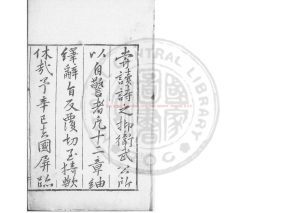 嘗讀詩之抑衛武公所
以自警者凡十二章紬
繹辭旨反覆切至掩歎
休哉予辛巳去國屏臨